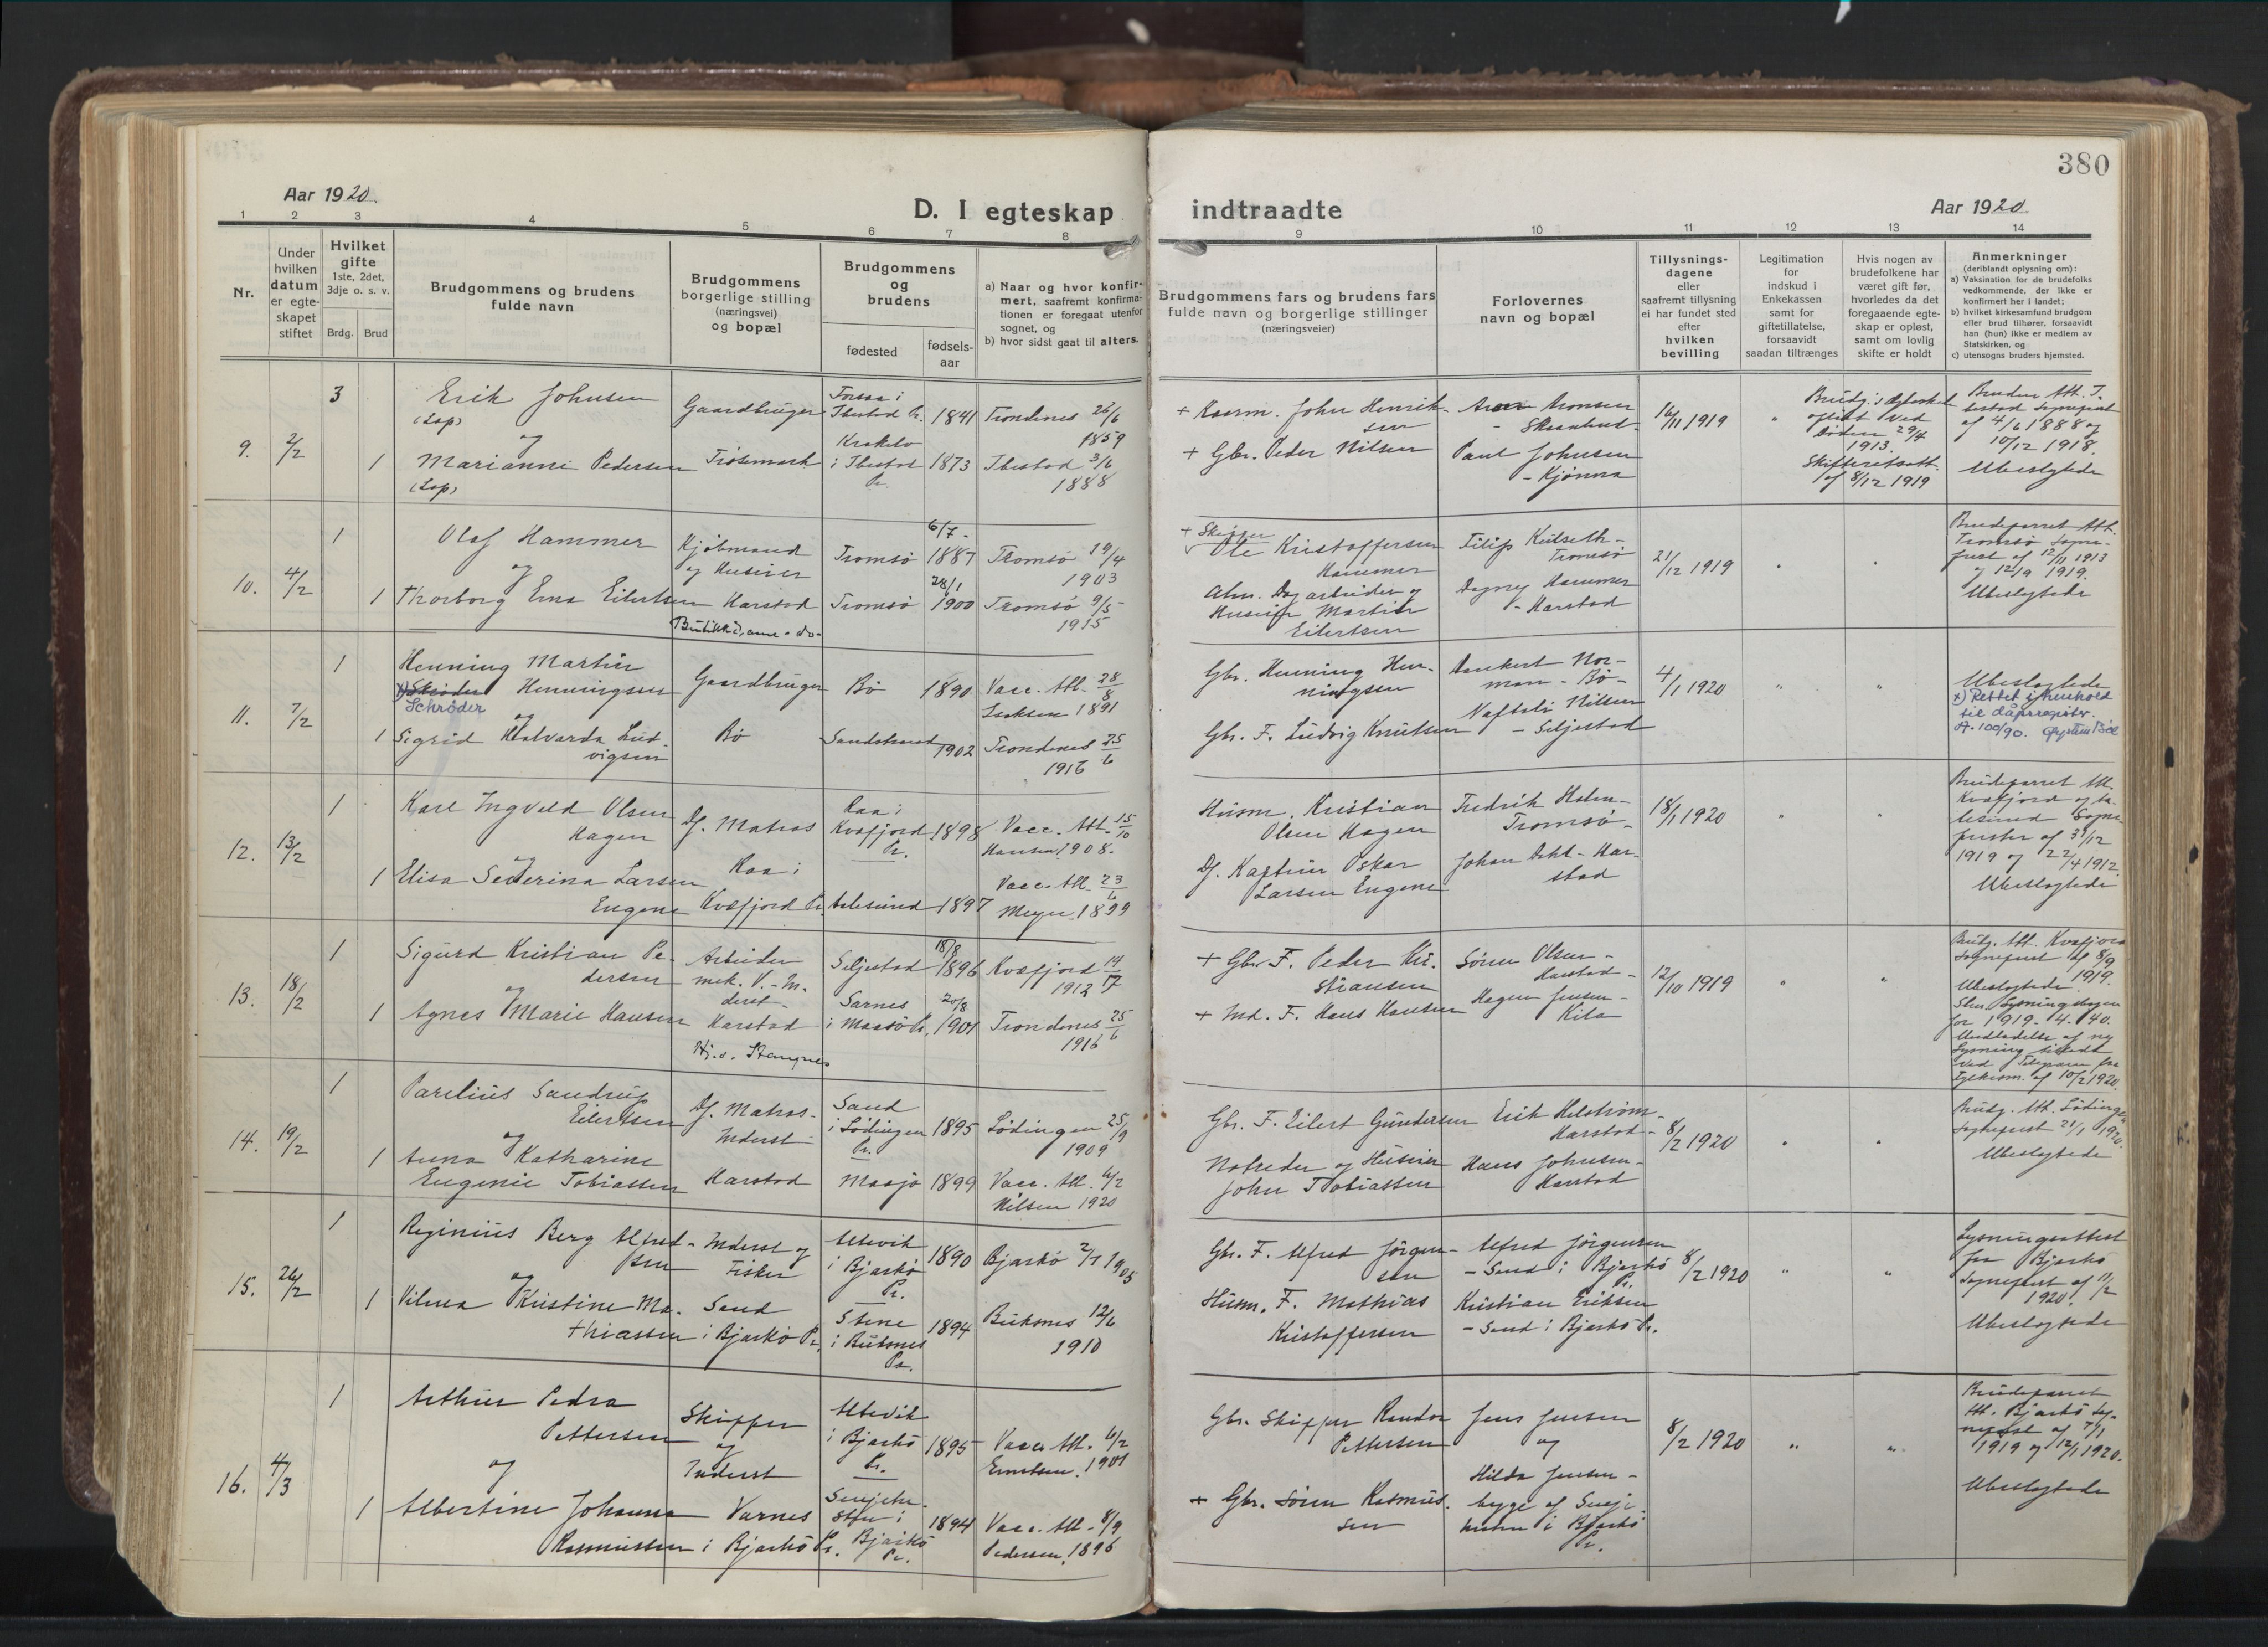 380
Aar 1920.
D. I egteskap indtraadte
Aar 1920
1 2 3 4 5 6 7 8 9 10 11 12 13 14
Nr.
Under
hvilken
datum
er egte-
skapet
stiftet
Hvilket
gifte
1ste, 2det,
3dje o. s. v.
Brdg. Brud
Brudgommens og brudens
fulde navn
Brudgommens
borgerlige stilling
(næringsvei)
og bopæl
Brudgommens
og
brudens
fødested
fødsels-
aar
a) Naar og hvor konfir-
mert, saafremt konfirma-
tionen er foregaat utenfor
sognet, og
b) hvor sidst gaat til alters.
Brudgommens fars og brudens fars
fulde navn og borgerlige stillinger
(næringsveier)
Forlovernes
navn og bopæl
Tillysnings-
dagene
eller
saafremt tillysning
ei har fundet sted
efter
hvilken
bevilling
Legitimation
for
indskud i
Enkekassen
samt for
giftetillatelse,
forsaavidt
saadan tiltrænges
Hvis nogen av
brudefolkene har
været gift før,
hvorledes da det
foregaaende egte-
skap er opløst,
samt om lovlig
skifte er holdt
Anmerkninger
(deriblandt oplysning om):
a) Vaksination for de brudefolks
vedkommende, der ikke er
konfirmert her i landet;
b) hvilket kirkesamfund brudgom
eller brud tilhører, forsaavidt
han (hun) ikke er medlem av
Statskirken, og
c) utensogns bruders hjemsted.
9. 2/2
3 1
Erik Johnsen
(Lap)
og
Marianne Pedersen
(Lap)
Gaardbruger
Trøsemark
i
Ibestad Pr. 1841
i Ibestad 1873
Pr.
Trondenes 26/6
1859
Ibestad 3/6
1888
+ John Henrik-
sen
+ Gbr. Peder Nilsen
Aronsen
Paul Johnsen
- Kjønna
16/11 1919
"
Brudg.s Ægteskab
opløst ved
Døden 29/4
1913.
Skifteretsatt.
af 8/12 1919
Bruden Att. I-
bestad Sognepræst
af 4/6 1888 og
10/12 1918.
Ubeslægtede
10. 4/2
1 1
Olaf Hammer
og
Thorborg Erna Eilertsen
Kjøbmand
og Huseier
Harstad
- do -
Tromsø 6/7 - 1887
Tromsø 28/1 1900
Tromsø 19/4
1903
Tromsø 9/5 -
1915
+ Skipper
Ole Kristoffersen
Hammer
Alm. Dagarbeider og
Huseier Martin
Eilertsen
Filip Kulseth -
Tromsø
Dagny Hammer
- Harstad
21/12 1919
Brudeparret Att.
Tromsø Sogne-
præst af 12/11 1913
og 12/9 1919.
Ubeslægtede
11. 7/2
1 1
Henning Martin
x) Skrøder Henningsen
Schrøder
og
Sigrid Halvarda Lud-
vigsen
Gaardbruger
Bø
Bø 1890
Sandstrand 1902
Vacc. Att. 28/8
1891
Trondenes 25/6
1916
Gbr. Henning Hen-
ningsen
Gbr. F. Ludvig Knutsen
Nor-
man - Bø -
Naftali Nilsen
- Seljestad
4/1 1920
"
"
Ubeslægtede
x) Rettet i henhold
til dåpsregistr.
A. 100/90.
12. 13/2
1 1
Karl Ingveld Olsen
Hagen
og
Elisa Severina Larsen
Eugene
Df. Matros
Raa i
Kvæfjord Pr.
Raa i
Kvæfjord 1898
Pr.
Aalesund 1897
Vacc. Att. 15/10
Hansen 1908.
Vacc. Att. 23/6
Meyer 1899
Husm. Kristian
Olsen Hagen
Df. Kaptein Oskar
Larsen Eugene
Fredrik Holm -
Tromsø -
Johan Dahl - Har-
stad
18/1 1920
"
"
Brudeparret Att.
Kvæfjord og Aa-
lesund Sogne-
præster af 31/12
1919 og 22/4 1912
Ubeslægtede
13. 18/2
1 1
Sigurd Kristian Pe-
dersen
og
Agnes Marie Hansen
Arbeider
mek. V. -
Harstad
Hj. v. Stangnes
Seljestad 18/8 1896
Sarnes
i Maasø Pr. 20/8 1901
Kvæfjord 14/7
1912
Trondenes 25/6
1916
+ Gbr. F. Peder Kri-
stiansen
+ Ind. F. Hans Hansen
Søren Olsen -
Harstad -
Hagen Jensen -
Kila
12/10 1919
"
"
Brudg. Att. Kvæfjord
Sognepræst af 8/9
1919.
Ubeslægtede
Lysningsbogen
for 1919. 4. 40.
Undladelse af ny
Lysning tilladt
ved Telegram fra
af 10/2 1920.
14. 19/2
1 1
Parelius Sandrup
Eilertsen
og
Anna Katharine
Eugenie Tobiassen
Df. Matros -
Inderst -
Harstad
Sand
i Lødingen 1895
Pr.
Maasø 1899
Lødingen 25/9
1909
Vacc. Att. 6/2
Nilsen 1920
Gbr. F. Eilert Gundersen
Notreder og Huseier
John Tobiassen
Erik Helstrøm -
Harstad -
Hans Johnsen -
Harstad
8/2 1920
"
"
Brudg. Att. Lødingen
Sognepræst 21/1 1920.
Ubeslægtede
15. 26/2
1 1
Reginius Berg Alfred-
sen
og
Vilma Kristine Ma-
thiassen
Inderst og
Fisker
Sand
i Bjarkø Pr.
Altevik
i Bjarkø 1890
Pr.
Stene
i Buksnes 1894
Pr.
Bjarkø 2/7 1905
Buksnes 12/6
1910
Gbr. F. Alfred Jørgen-
sen
Husm. F. Mathias
Kristoffersen
Alfred Jørgensen
- Sand i Bjarkø
Pr.
Kristian Eriksen
- Sand i Bjarkø Pr.
8/2 1920
"
"
Lysningsattest
fra Bjarkø
Sognepræst af 11/2
1920.
Ubeslægtede
16. 4/3
1 1
Arthur Pedra
Pettersen
og
Albertine Johanna
Rasmussen
Skipper
og
Inderst
Varnes
i Bjarkø Pr.
Altevik
i Bjarkø 1895
Pr.
i 1894
Bjarkø
Pr.
Vacc. Att. 6/2
Ernstsen. 1901
Vacc. Att. 8/9
Pedersen. 1896
Gbr. Skipper Rendor
Pettersen
+ Gbr. Søren Rasmus-
sen
Jens Jensen
og
Hilda Jensen -
begge af
i Bjarkø
Pr.
8/2 1920
"
"
Brudeparret
Att. Bjarkø Sog-
nepræst af 7/1
1919 og 12/1 1920.
Ubeslægtede